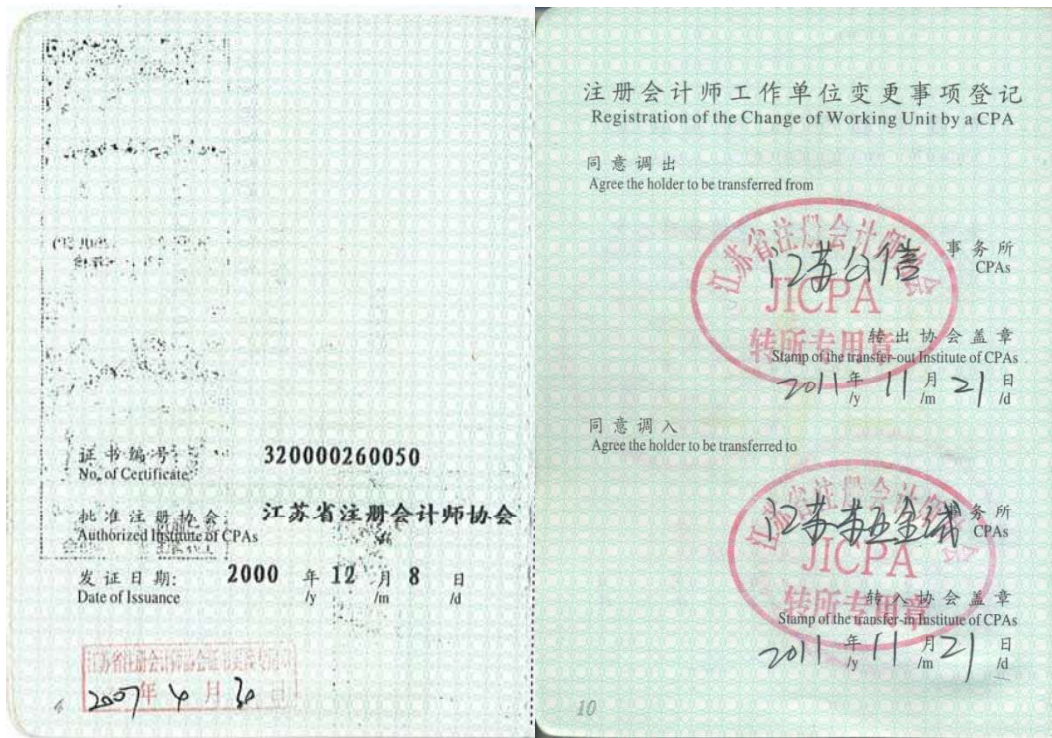 证书编号:
No. of Certificate
320000260050
批准注册协会:
Authorized Institute of CPAs
江苏省注册会计师协会
发证日期:
Date of Issuance
2000 年 12 月 8 日
/y /m /d
2007年 4 月 30 日
4
注册会计师工作单位变更事项登记
Registration of the Change of Working Unit by a CPA
同意调出
Agree the holder to be transferred from
江苏省注册会计师协会
江苏公信
事务所
CPAs
JICPA
转所专用章
转出协会盖章
Stamp of the transfer-out Institute of CPAs
2011 年 11 月 21 日
/y /m /d
同意调入
Agree the holder to be transferred to
江苏省注册会计师协会
事务所
CPAs
JICPA
转所专用章
转入协会盖章
Stamp of the transfer-in Institute of CPAs
2011 年 11 月 21 日
/y /m /d
10